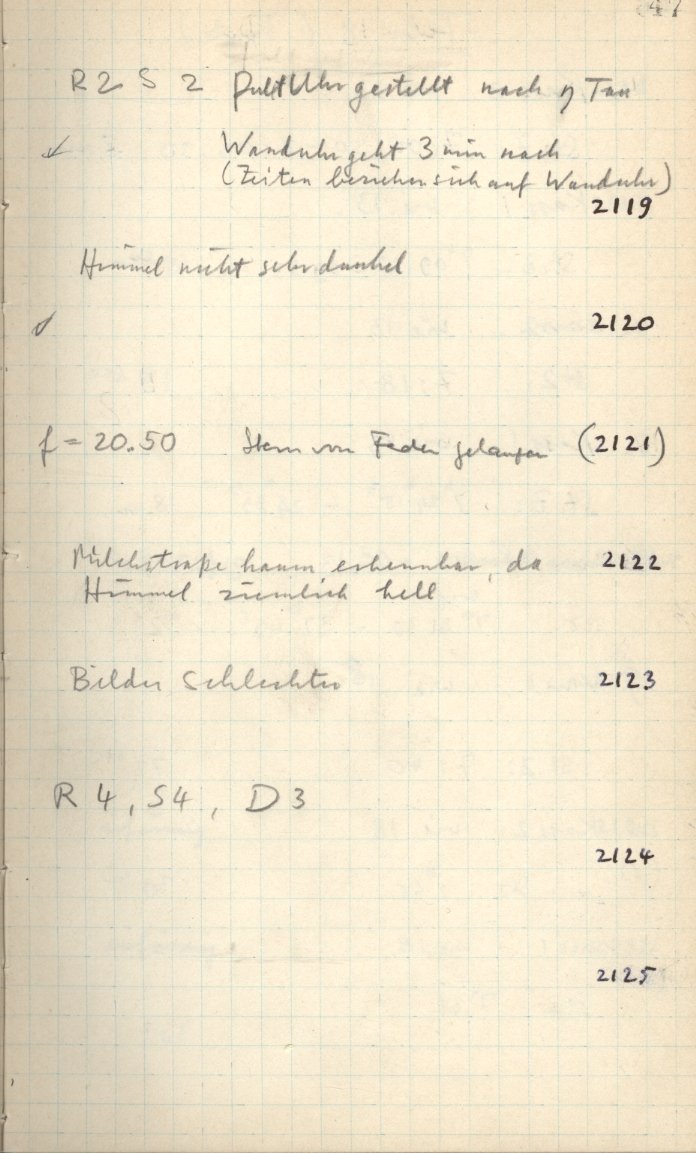 47
R 2 S 2 PultUhr gestellt nach η Tau
Wanduhr geht 3 min nach
(Zeiten beziehen sich auf Wanduhr)
2119
Himmel nicht sehr dunkel
2120
f = 20.50 Stern von Faden gelaufen (2121)
Milchstraße kaum erkennbar, da 2122
Himmel ziemlich hell
Bilder schlechter 2123
R 4, S 4, D 3
2124
2125